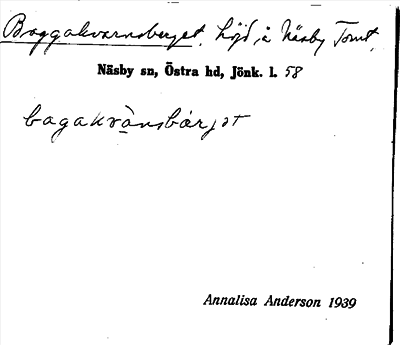 Baggakvarnsberget, höjd å Näsby Tomt,
Näsby sn, Östra hd, Jönk. l. 58
bagakvànsbærjət
Annalisa Anderson 1939